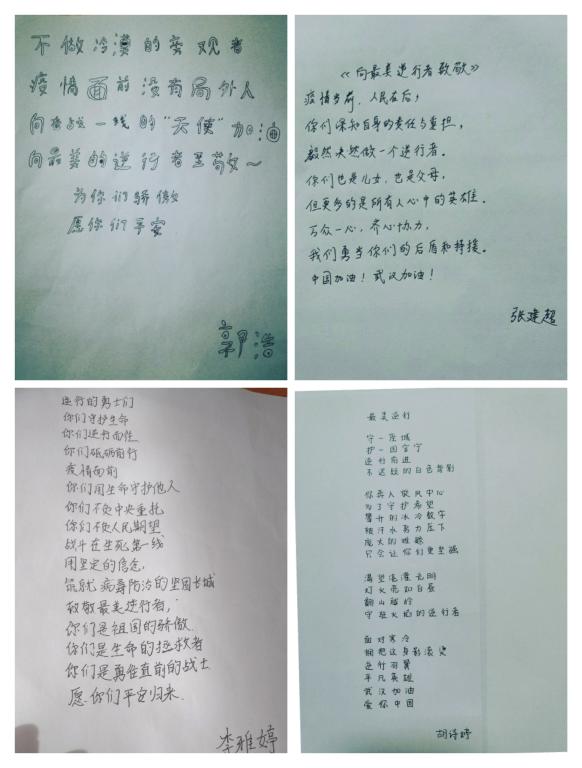 不做冷漠的旁观者
疫情面前没有局外人
向夜战一线的"天使"加油
向最美的逆行者至敬～
为你们骄傲
愿你们平安
郭浩
《向最美逆行者致敬》
疫情当前，人民在后，
你们深知自身的责任与重担，
毅然决然做一个逆行者。
你们也是儿女，也是父母，
但更多的是所有人心中的英雄。
万众一心，齐心协力，
我们勇当你们的后盾和持援。
中国加油！武汉加油！
张建超
逆行的勇士们
你们守护生命
你们逆行而往
你们砥砺前行
疫情面前
你们用生命守护他人
你们不负中央重托
你们不负人民期望
战斗在生死第一线
用坚定的信念,
筑就病毒防治的坚固长城
致敬最美逆行者,
你们是祖国的骄傲
你们是生命的拯救者
你们是勇往直前的战士
愿你们平安归来
李雅婷
最美逆行
守一座城
护一国安宁
逆行前进
不迟疑的白色背影
你奔入暴风中心
为了守护希望
攀升的冰冷数字
被汗水努力压下
庞大的艰难
只会让你们更坚强
渴望浇灌光明
灯火亮如白昼
翻山越岭
守在火焰的逆行者
面对寒冷
拥抱这身影滚烫
逆行羽翼
平凡英雄
武汉加油
爱你中国
胡诗婷